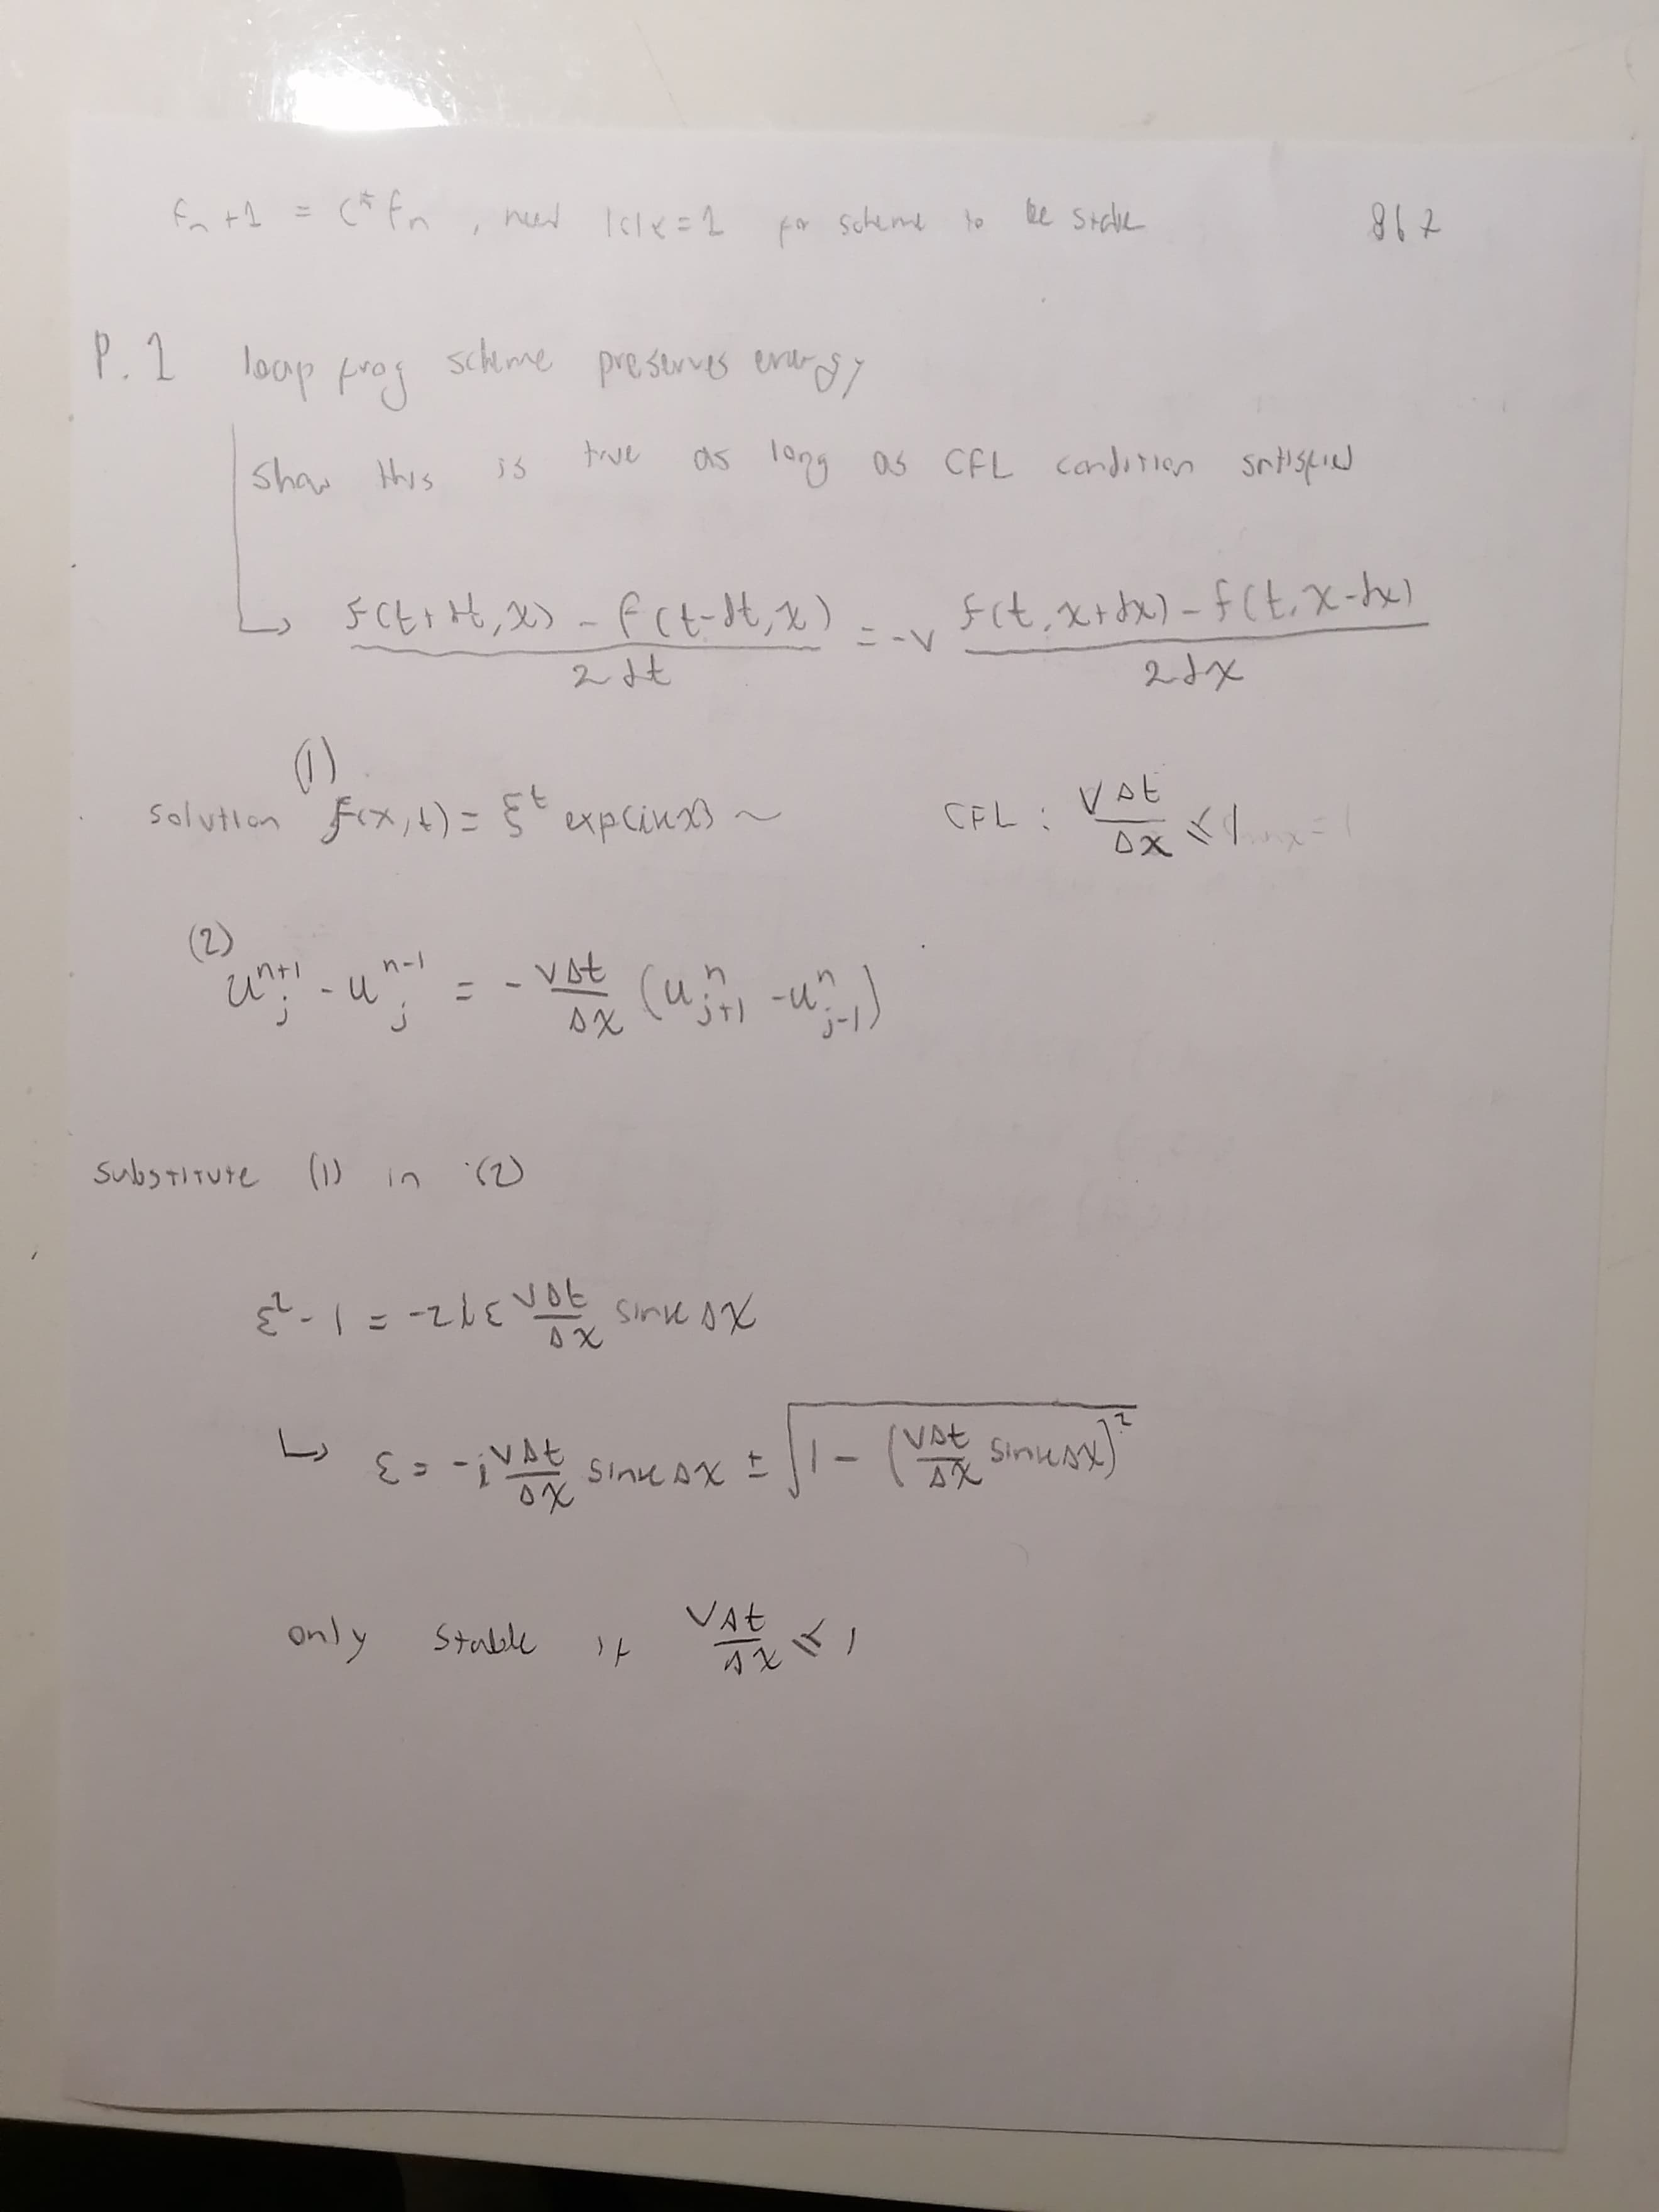 fn+1 = c*fn , need |c|<=1 for scheme to be stable 867
P.1 leap frog scheme preserves energy
show this is true as long as CFL condition satisfied
↳ f(t+dt,x) - f(t-dt,x) / 2dt = -v f(t,x+dx) - f(t,x-dx) / 2dx
(1)
solution f(x,t) = ξ^t exp(ikx) ~ CFL : vΔt/Δx ≤ 1
(2)
u_j^{n+1} - u_j^{n-1} = - vΔt/Δx (u_{j+1}^n - u_{j-1}^n)
substitute (1) in (2)
ξ² - 1 = -2iξ vΔt/Δx sinkΔx
↳ ξ = -i vΔt/Δx sinkΔx ± √(1 - (vΔt/Δx sinkΔx)²)
only stable if vΔt/Δx ≤ 1